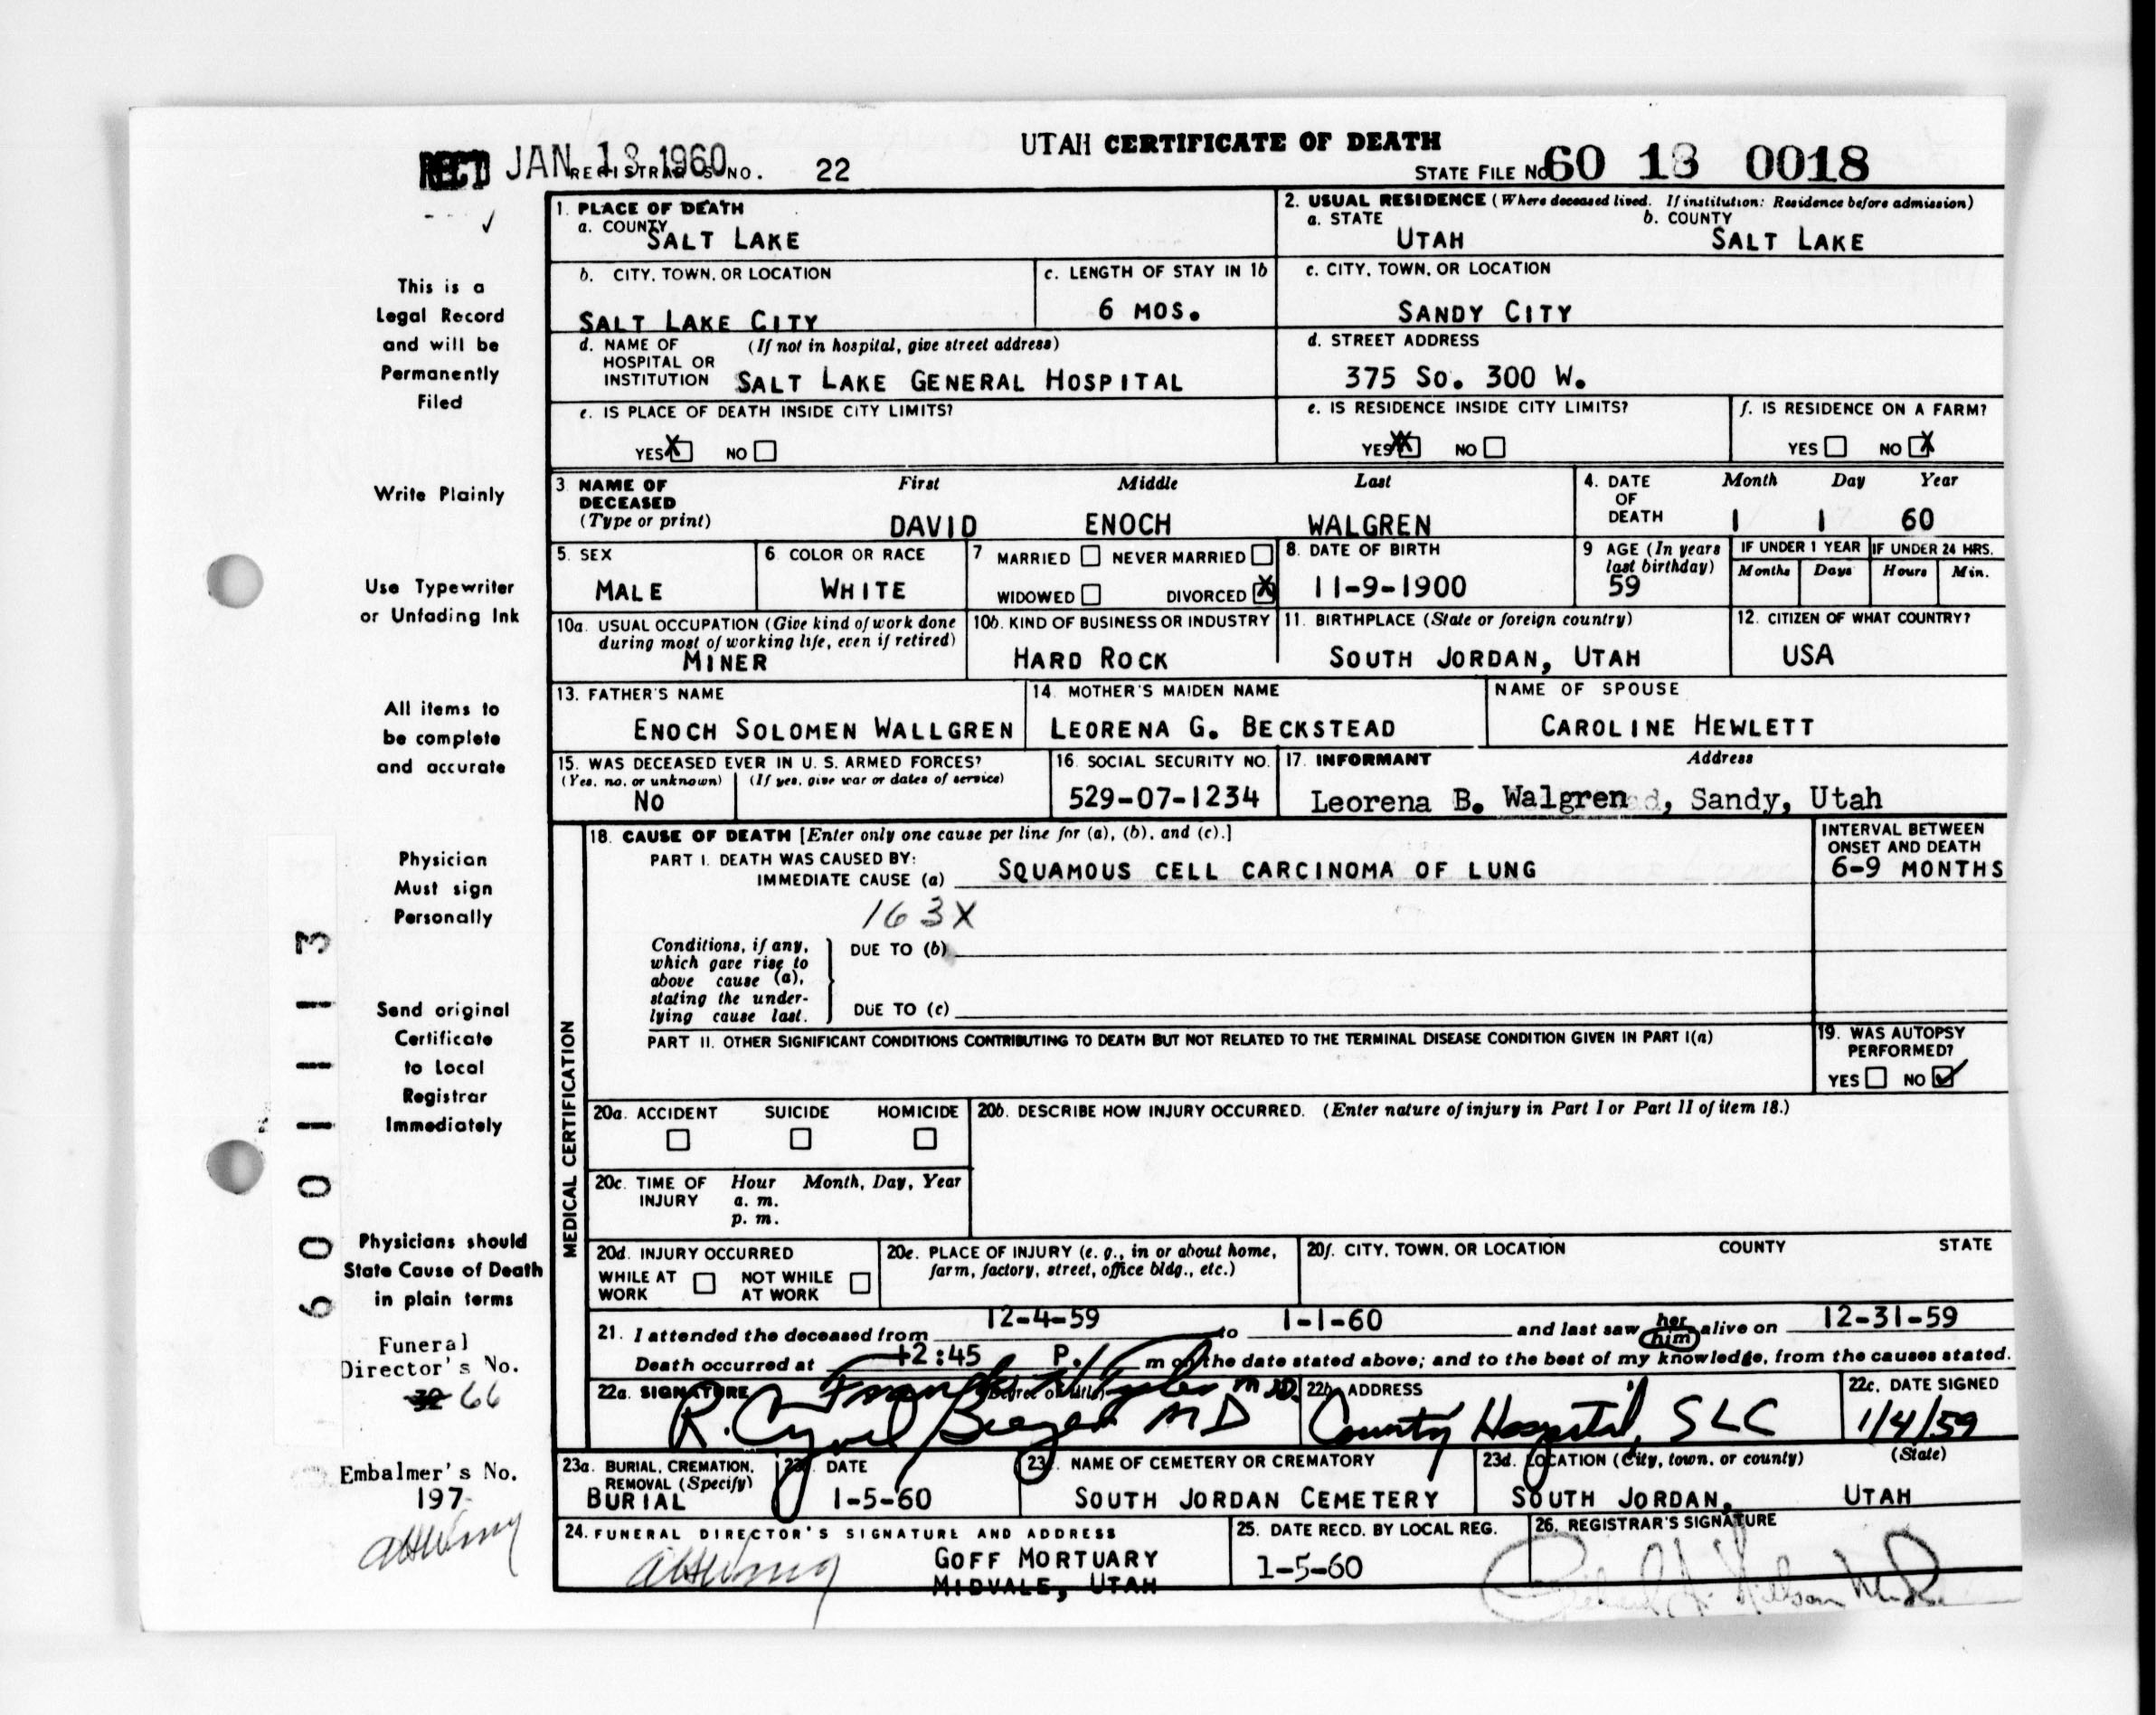 UTAH CERTIFICATE OF DEATH
REC'D JAN 13 1960 REGISTRAR'S NO. 22 STATE FILE NO. 60 13 0018
1. PLACE OF DEATH
a. COUNTY
SALT LAKE
2. USUAL RESIDENCE (Where deceased lived. If institution: Residence before admission)
a. STATE b. COUNTY
UTAH SALT LAKE
b. CITY, TOWN, OR LOCATION
SALT LAKE CITY
c. LENGTH OF STAY IN 1b
6 MOS.
c. CITY, TOWN, OR LOCATION
SANDY CITY
d. NAME OF (If not in hospital, give street address)
HOSPITAL OR
INSTITUTION SALT LAKE GENERAL HOSPITAL
d. STREET ADDRESS
375 SO. 300 W.
e. IS PLACE OF DEATH INSIDE CITY LIMITS?
YES X NO
e. IS RESIDENCE INSIDE CITY LIMITS?
YES X NO
f. IS RESIDENCE ON A FARM?
YES NO X
3 NAME OF DECEASED (Type or print) First Middle Last
DAVID ENOCH WALGREN
4. DATE OF DEATH Month Day Year
1 1 60
5. SEX
MALE
6. COLOR OR RACE
WHITE
7 MARRIED NEVER MARRIED
WIDOWED DIVORCED X
8. DATE OF BIRTH
11-9-1900
9 AGE (In years last birthday)
59
IF UNDER 1 YEAR IF UNDER 24 HRS.
Months Days Hours Min.
10a. USUAL OCCUPATION (Give kind of work done
during most of working life, even if retired)
MINER
10b. KIND OF BUSINESS OR INDUSTRY
HARD ROCK
11. BIRTHPLACE (State or foreign country)
SOUTH JORDAN, UTAH
12. CITIZEN OF WHAT COUNTRY?
USA
13. FATHER'S NAME
ENOCH SOLOMEN WALLGREN
14. MOTHER'S MAIDEN NAME
LEORENA G. BECKSTEAD
NAME OF SPOUSE
CAROLINE HEWLETT
15. WAS DECEASED EVER IN U. S. ARMED FORCES?
(Yes, no, or unknown) (If yes, give war or dates of service)
NO
16. SOCIAL SECURITY NO.
529-07-1234
17. INFORMANT Address
Leorena B. Walgren, Sandy, Utah
MEDICAL CERTIFICATION
18. CAUSE OF DEATH [Enter only one cause per line for (a), (b), and (c).]
PART I. DEATH WAS CAUSED BY:
IMMEDIATE CAUSE (a) SQUAMOUS CELL CARCINOMA OF LUNG
163X
INTERVAL BETWEEN
ONSET AND DEATH
6-9 MONTHS
Conditions, if any,
which gave rise to
above cause (a),
stating the under-
lying cause last.
DUE TO (b)
DUE TO (c)
PART II. OTHER SIGNIFICANT CONDITIONS CONTRIBUTING TO DEATH BUT NOT RELATED TO THE TERMINAL DISEASE CONDITION GIVEN IN PART I(a)
19. WAS AUTOPSY
PERFORMED?
YES NO ✓
20a. ACCIDENT SUICIDE HOMICIDE
20b. DESCRIBE HOW INJURY OCCURRED. (Enter nature of injury in Part I or Part II of item 18.)
20c. TIME OF INJURY Hour Month, Day, Year
a. m.
p. m.
20d. INJURY OCCURRED
WHILE AT WORK NOT WHILE AT WORK
20e. PLACE OF INJURY (e. g., in or about home,
farm, factory, street, office bldg., etc.)
20f. CITY, TOWN, OR LOCATION COUNTY STATE
21. I attended the deceased from 12-4-59 to 1-1-60 and last saw her him alive on 12-31-59
Death occurred at 12:45 P. m on the date stated above; and to the best of my knowledge, from the causes stated.
22a. SIGNATURE (Degree or title)
M.D.
R. Cyril MD
22b. ADDRESS
County Hospital, SLC
22c. DATE SIGNED
1/4/59
23a. BURIAL, CREMATION,
REMOVAL (Specify)
BURIAL
DATE
1-5-60
23c. NAME OF CEMETERY OR CREMATORY
SOUTH JORDAN CEMETERY
23d. LOCATION (City, town, or county) (State)
SOUTH JORDAN, UTAH
24. FUNERAL DIRECTOR'S SIGNATURE AND ADDRESS
GOFF MORTUARY
MIDVALE, UTAH
25. DATE RECD. BY LOCAL REG.
1-5-60
26. REGISTRAR'S SIGNATURE
This is a
Legal Record
and will be
Permanently
Filed
Write Plainly
Use Typewriter
or Unfading Ink
All items to
be complete
and accurate
Physician
Must sign
Personally
Send original
Certificate
to Local
Registrar
Immediately
Physicians should
State Cause of Death
in plain terms
Funeral
Director's No.
66
Embalmer's No.
197
6001113